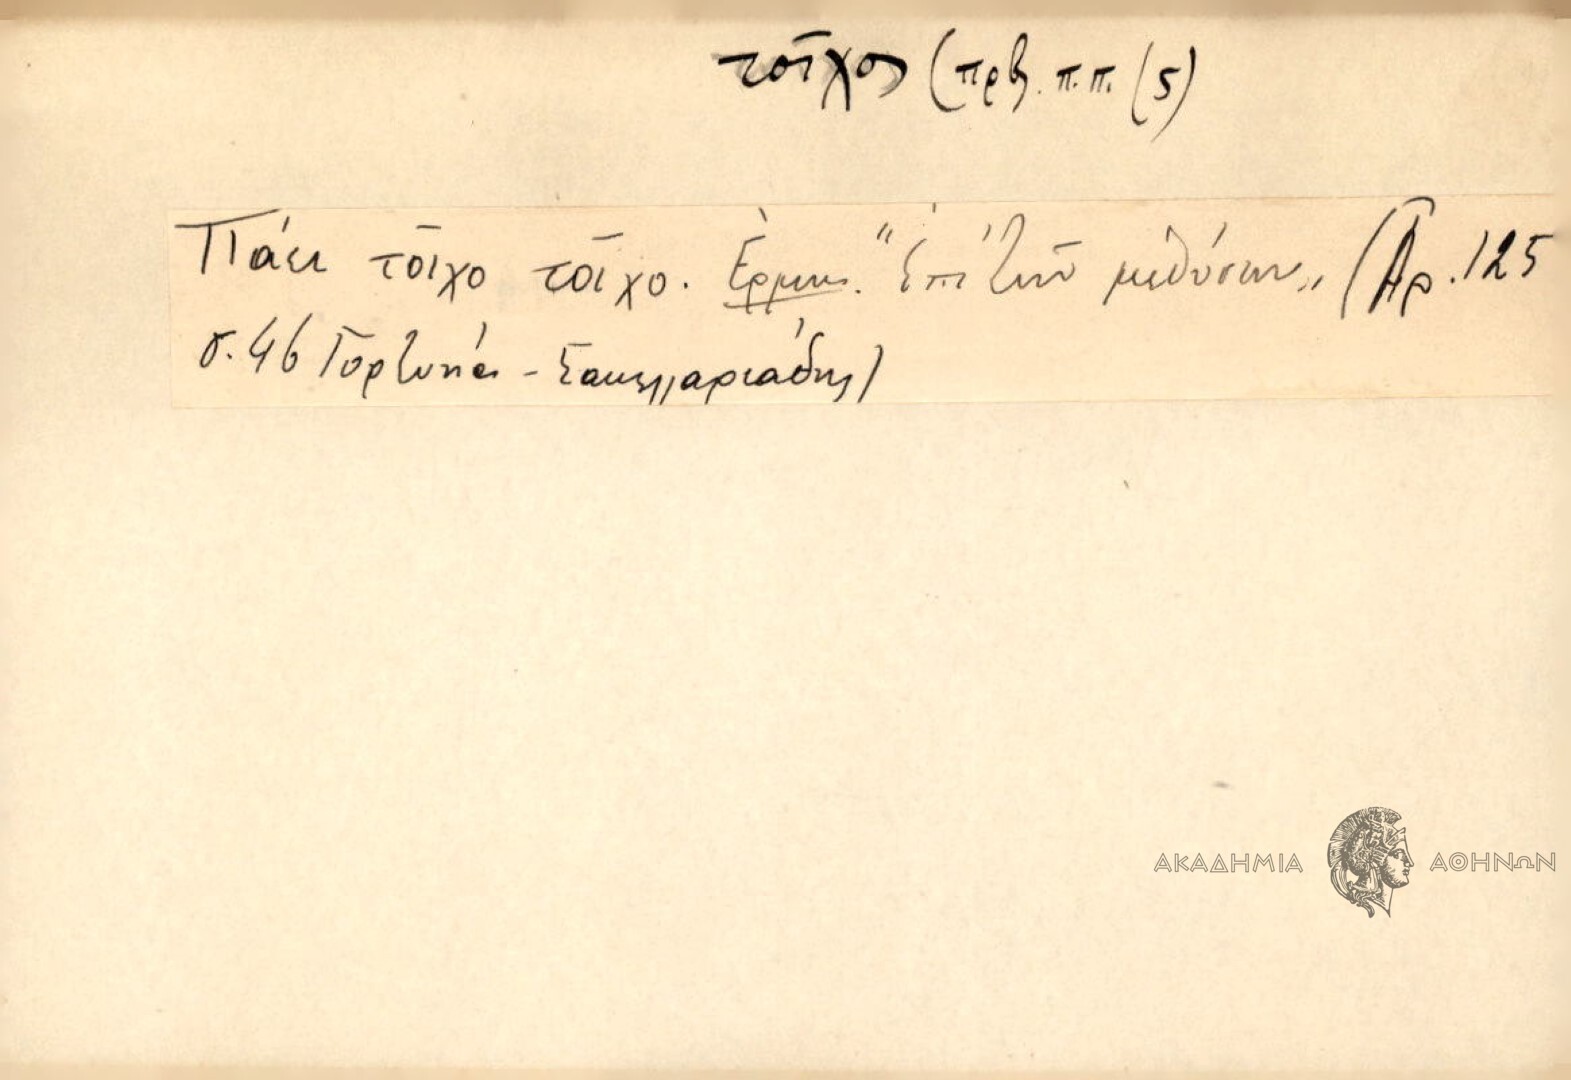 τοῖχος (πρβ. π.π. (5)
Πάει τοῖχο τοῖχο. Ἑρμην. "ἐπὶ τῶν μεθύσων" (Ἀρ. 125
σ. 46 Γορτυνία - Σακελλαριάδης)
ΑΚΑΔΗΜΙΑ ΑΘΗΝΩΝ